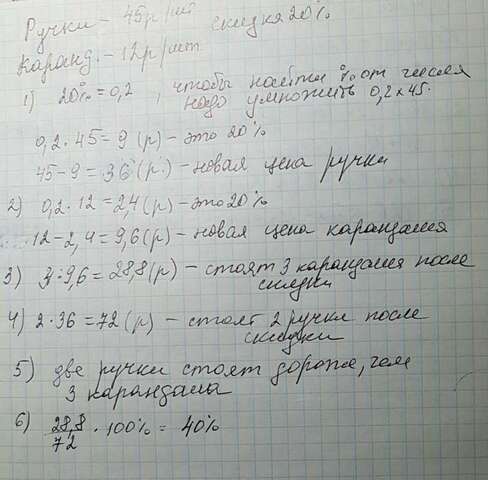 Ручки – 45р/шт скидка 20%
Каранд. – 12р/шт
1) 20% = 0,2 , чтобы найти % от числа
надо умножить 0,2 х 45.
0,2 · 45 = 9 (р) – это 20%
45 – 9 = 36 (р.) – новая цена ручки
2) 0,2 · 12 = 2,4 (р) – это 20%
12 – 2,4 = 9,6 (р) – новая цена карандаша
3) 3 · 9,6 = 28,8 (р) – стоят 3 карандаша после
скидки
4) 2 · 36 = 72 (р) – стоят 2 ручки после
скидки
5) две ручки стоят дороже, чем
3 карандаша
6) 28,8/72 · 100% = 40%